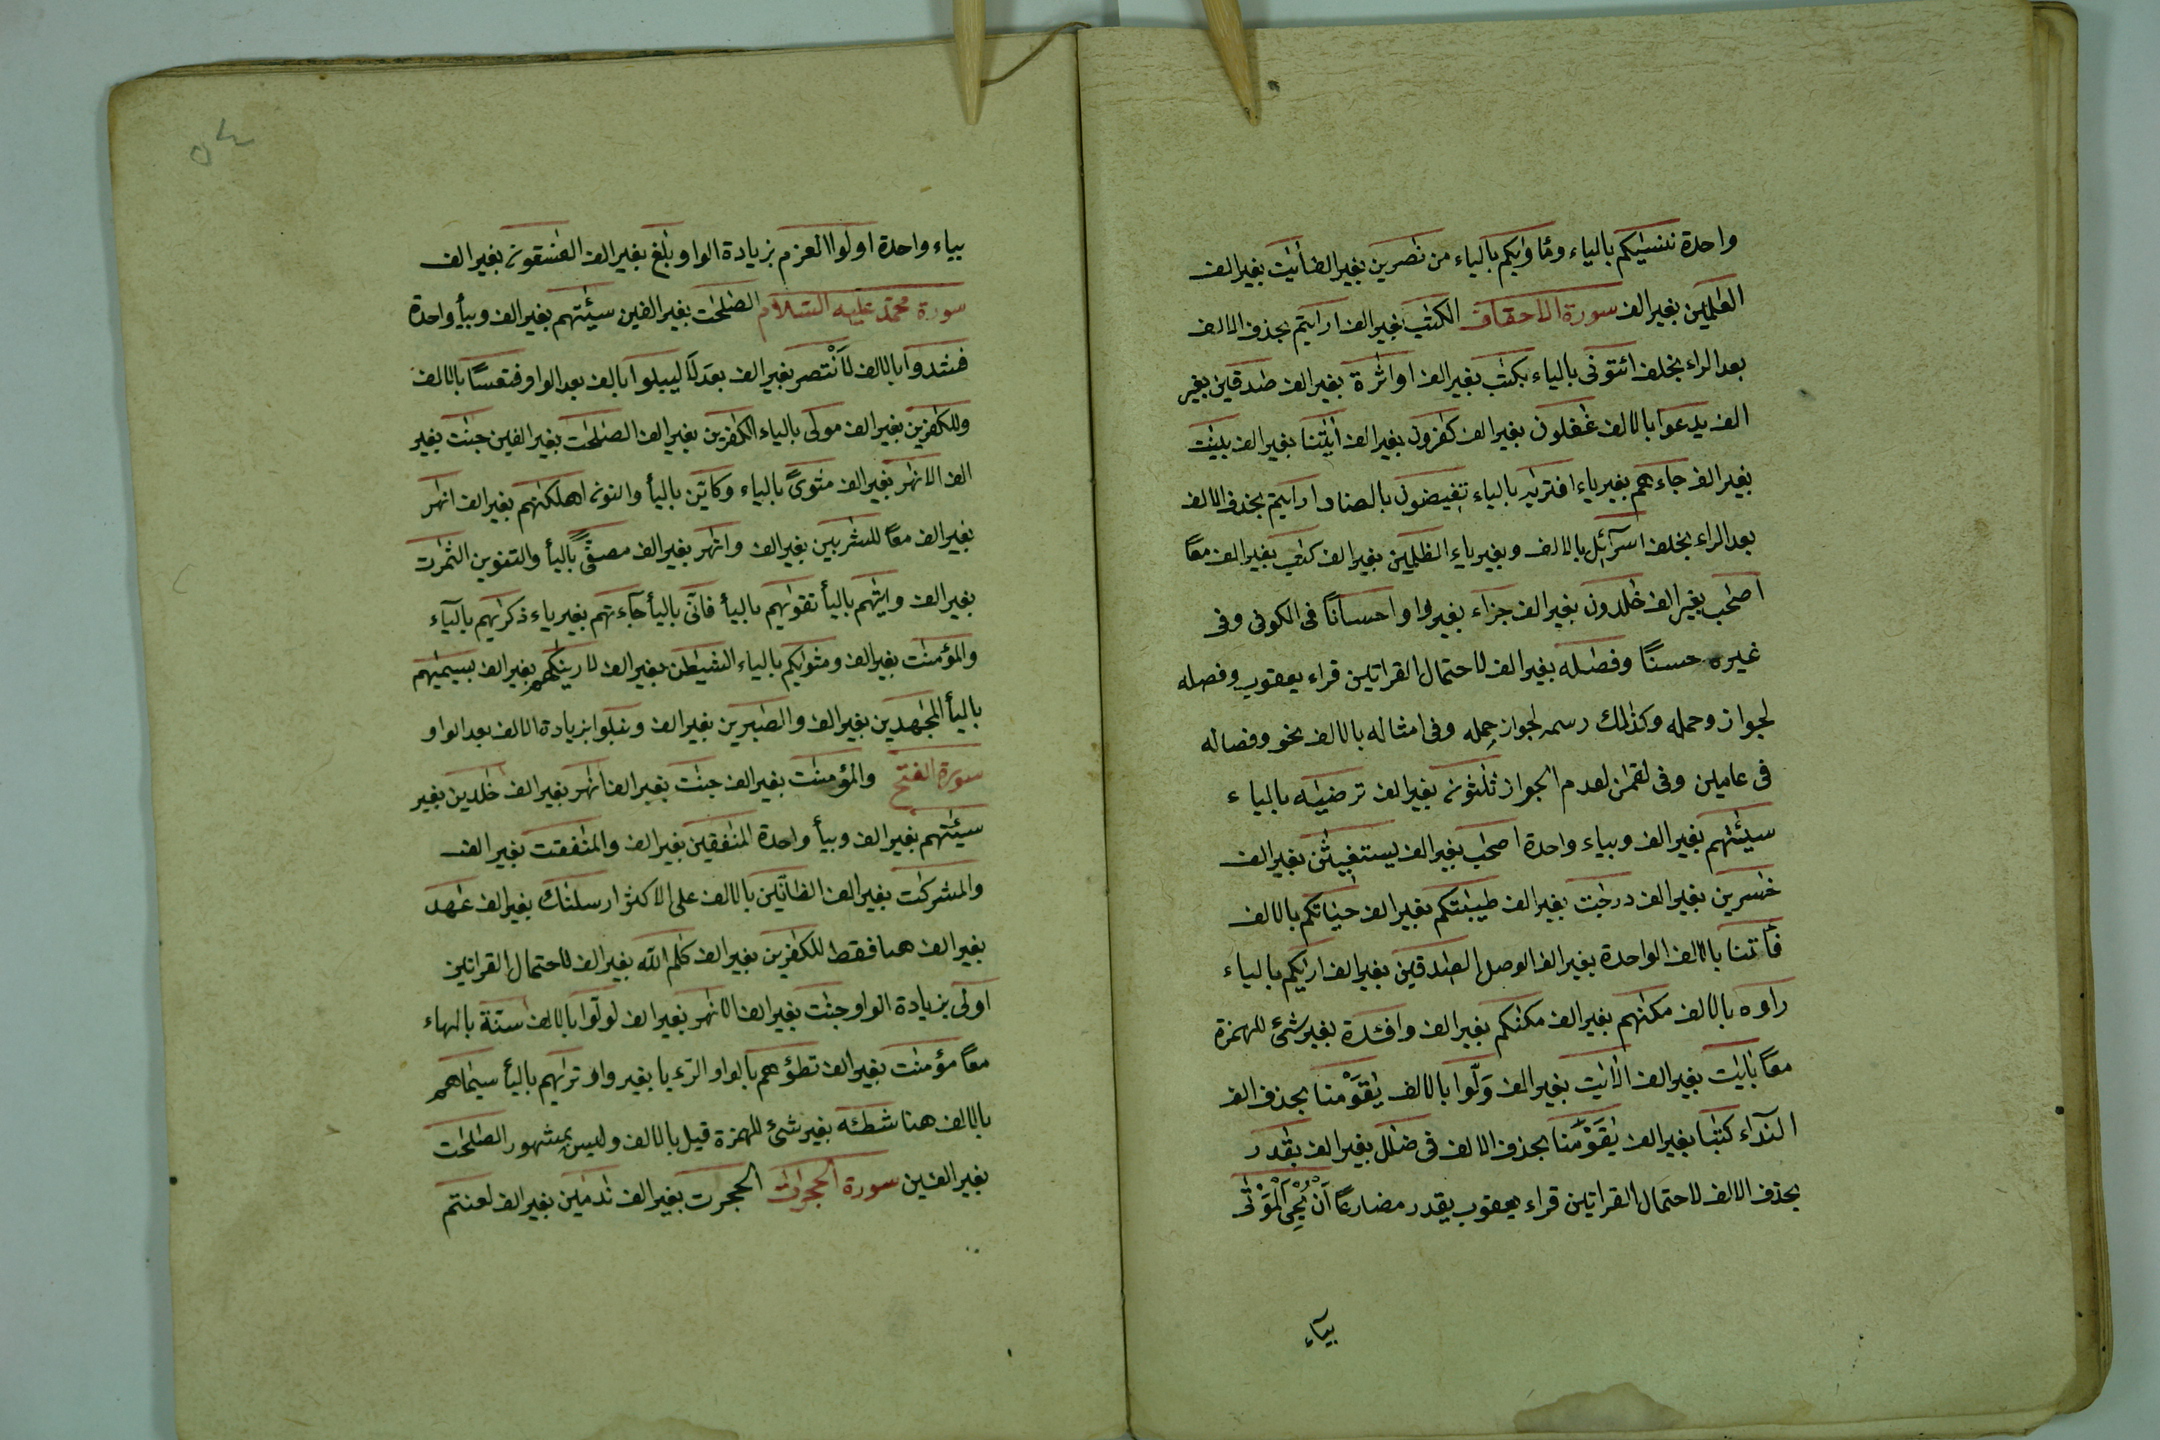 واحدة ننسىٰكم بالياء ومأوىٰكم بالياء من نٰصرين بغير الف اٰيٰت بغير الف
العٰلمين بغير الف سورة الاحقاف الكتٰب بغير الف ارايتم بحذف الالف
بعد الراء بخلف ائتونى بالياء بكتٰب بغير الف او اثٰرة بغير الف صٰدقين بغير
الف يدعوا بالالف غٰفلون بغير الف كٰفرون بغير الف اٰيٰتنا بغير الف بينٰت
بغير الف جاءهم بغير ياء افترىٰه بالياء تفيضون بالضاد ارايتم بحذف الالف
بعد الراء بخلف اسرآئل بالالف وبغير ياء الظٰلمين بغير الف كتٰب بغير الف معًا
اصحٰب بغير الف خٰلدون بغير الف جزاء بغير واو احسانًا فى الكوفى وفى
غيره حسنًا وفصٰله بغير الف لاحتمال القراتين قراء يعقوب وفصله
لجواز وحمله وكذٰلك رسمه لجواز حمله وفى امثاله بالالف نحو وفصاله
فى عامين وفى لقمٰن لعدم الجواز ثلٰثون بغير الف ترضىٰه بالياء
سيئٰتهم بغير الف وبياء واحدة اصحٰب بغير الف يستغيثٰن بغير الف
خٰسرين بغير الف درجٰت بغير الف طيبٰتكم بغير الف حياتكم بالالف
فأتنا بالالف الواحدة بغير الف الوصل الصٰدقين بغير الف ارىٰكم بالياء
راوه بالالف مكنٰهم بغير الف مكنٰكم بغير الف وافئدة بغير شئ للهمزة
معًا باٰيٰت بغير الف الاٰيٰت بغير الف وَلَّوا بالالف يٰقَوْمنا بحذف الف
الندآء كتٰبا بغير الف يٰقَوْمَنا بحذف الالف فى ضلٰل بغير الف بقٰدر
بحذف الالف لاحتمال القراتين قراء يعقوب يقدر مضارعًا اَنْ يُحْيِىَ الْمَوْتٰى
بيآء
بياء واحدة اولوا العزم بزيادة الواو بلٰغ بغير الف الفٰسقون بغير الف
سورة محمد عليه السلام الصٰلحٰت بغير الفين سيئٰتهم بغير الف وبيأ واحدة
فشدوا بالالف لَانْتصر بغير الف بعد لَا ليبلوا بالف بعد الواو فتعسًا بالالف
وللكٰفرين بغير الف مولى بالياء الكٰفرين بغير الف الصٰلحٰت بغير الفين جنٰت بغير
الف الانهٰر بغير الف مثوىً بالياء وكاين باليأ والنون اهلكنٰهم بغير الف انهٰر
بغير الف معًا للشٰربين بغير الف وانهٰر بغير الف مصفًّى باليأ والتنوين الثمرٰت
بغير الف واٰتىٰهم باليأ تقوىٰهم باليأ فانّى باليأ جآءتهم بغير ياء ذكرىٰهم باليآء
والمؤمنٰت بغير الف ومثوىٰكم بالياء الشيطٰن بغير الف لارينٰكهم بغير الف بسيمىٰهم
باليأ المجٰهدين بغير الف والصٰبرين بغير الف ونبلوا بزيادة الالف بعد الواو
سورة الفتح والمؤمنٰت بغير الف جنٰت بغير الف انهٰر بغير الف خٰلدين بغير
سيئٰتهم بغير الف وبيأ واحدة المنٰفقين بغير الف والمنٰفقٰت بغير الف
والمشركٰت بغير الف الظانّين بالالف على الاكثر ارسلنٰك بغير الف عٰهد
بغير الف هنا فقط للكٰفرين بغير الف كلٰم الله بغير الف لاحتمال القراتين
اولى بزيادة الواو جنٰت بغير الف الانهٰر بغير الف لولّوا بالالف سنّة بالهاء
معًا مؤمنٰت بغير الف تطؤهم بالواو الرءيا بغير واو ترىٰهم باليأ سيماهم
بالالف هنا شطئه بغير شئ للهمزة قيل بالالف وليس بمشهور الصٰلحٰت
بغير الفين سورة الحجرات الحجرٰت بغير الف نٰدمين بغير الف لعنتم